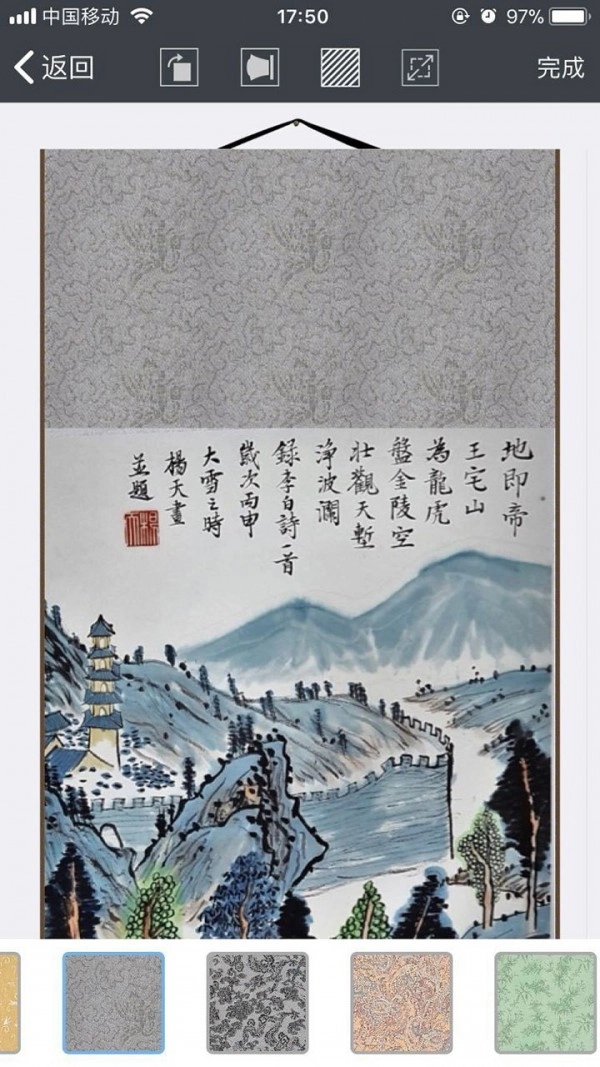 中国移动 17:50 97%
返回 完成
地即帝
王宅山
為龍虎
盤金陵空
壯觀天塹
淨波瀾
録李白詩一首
歲次丙申
大雪之時
楊天畫
並題